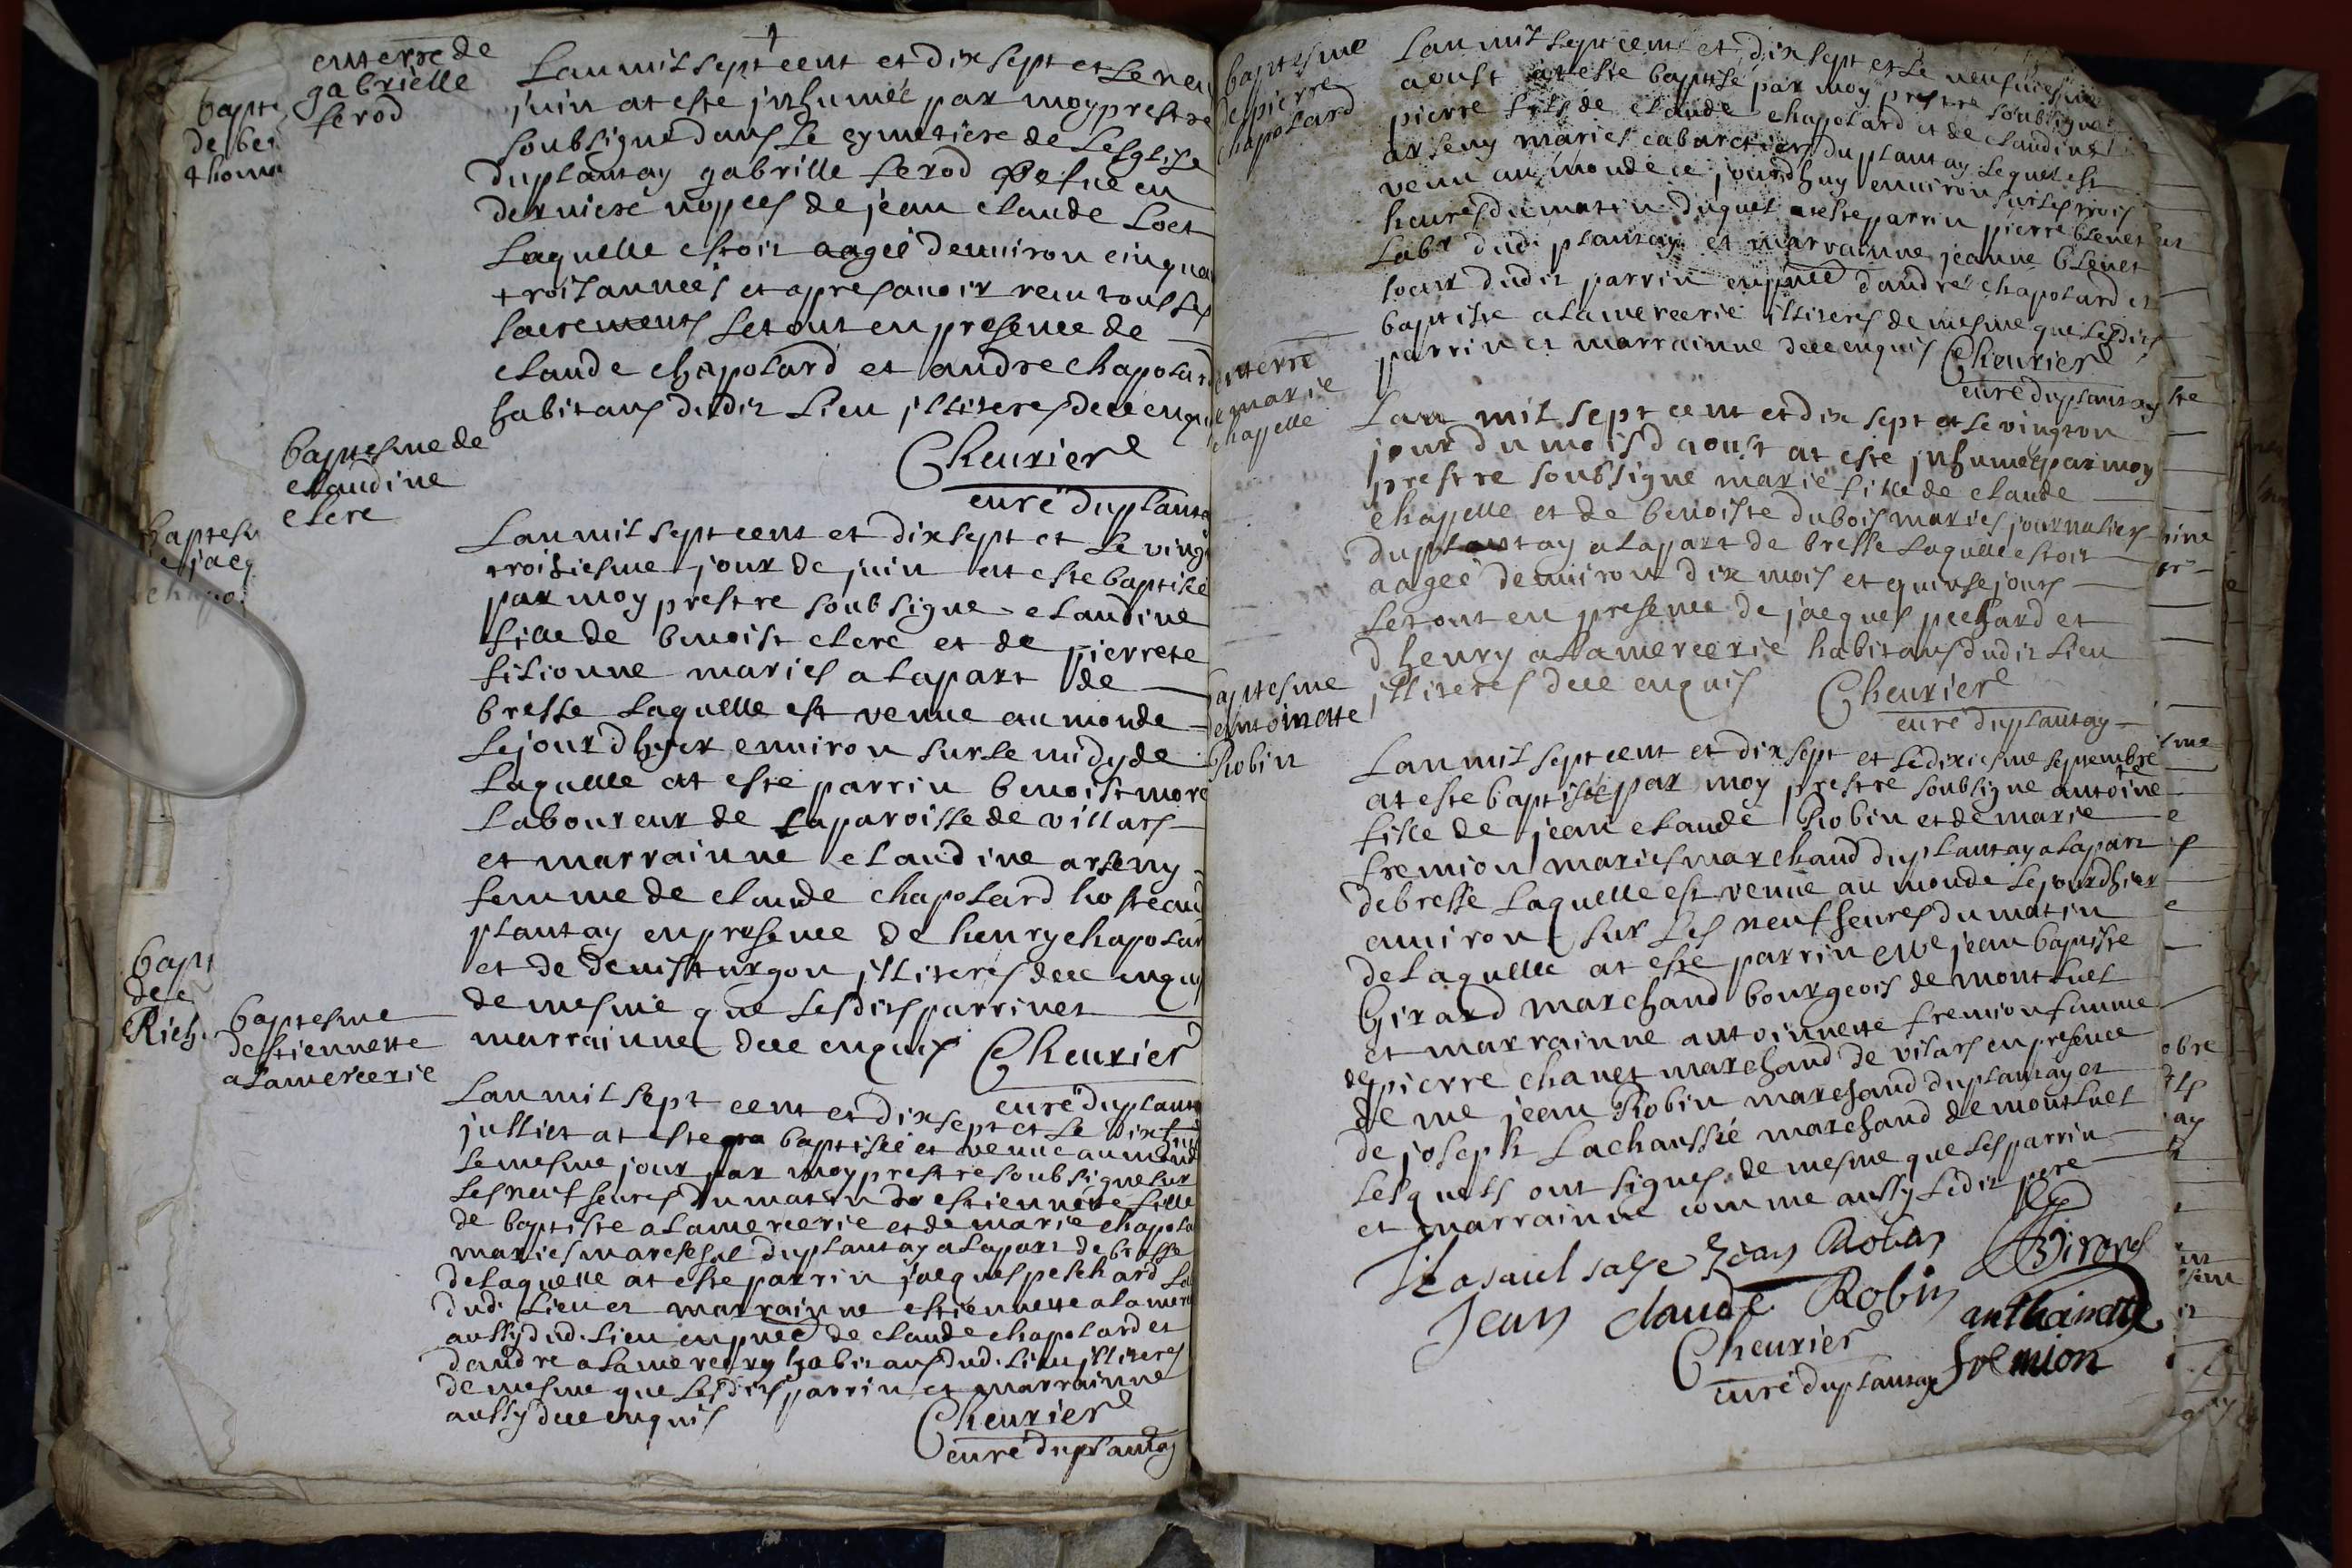 enterre de
gabrielle
ferod
Lan mil sept cent et dix sept et le neu
juin at esté jnhumeé par moy prestre
soubsigné dans le cymetiere de Lesglise
duplantay gabrille ferod
derniere nopces de jean claude Loet
Laquelle estoit aageé denuiron cinqua
trois anneés et apres auoir receu tous les
sacrements le tout en presence de
claude chapolard et andre chapolard
habitans dudit Lieu jlliteres de ce enqu
Cheurier
curé duplanta
baptesme de
claudine
clerc
Lan mil sept cent et dix sept et le ving
troisiesme jour de juin at este baptiseé
par moy prestre soubsigné claudine
fille de benoist clerc et de pierrete
filionne mariés a la part de
bresse Laquelle est venue au monde
le jour dhyer enuiron sur le midy de
Laquelle at esté parrin benoist more
Laboureur de la paroisse de villars
et marrainne claudine arseny
femme de claude chapolard hoste au
plantay en presence de henry chapolar
et de denis turgon jlliteres de ce enquis
de mesme que lesdits parrin et
marrainne de ce enquis Cheurier
curé duplanta
baptesme
destiennette
alamercerie
Lan mil sept cent et dix sept et le dix
julliet at este baptiseé et venue au monde
le mesme jour par moy prestre soubsigne sur
les neuf heures du matin estiennette fille
de baptiste alamercerie et de marie chapola
mariés mareschal duplantay a la part de bresse
de Laquelle at este parrin jacques peschard
dud. Lieu et marrainne estiennette alamer
aussy dud. Lieu en pnce de claude chapolard et
dandre alamercery habitans dud. Lieu jlliteres
de mesme que lesdits parrin et marrainne
aussy de ce enquis
Cheurier
curé duplantay
baptesme
de pierre
chapolard
Lan mil sept cent et dix sept et le neufuiesme
aoust at este baptisé par moy prestre soubsigné
pierre fils de claude chapolard et de claudine
arseny mariés cabaretiers duplantay Lequel est
venu au monde ce jourdhuy enuiron sur les trois
heures du matin duquel at este parrin pierre blenet
Labr dudi plantay et marrainne jeanne blenet
soeur dudit parrin en pnce dandré chapolard et
baptiste alamercerie jlliteres de mesme que lesdits
parrin et marrainne de ce enquis Cheurier
curé duplantay
enterre
de marie
chappelle
Lan mil sept cent et dix sept et le vingt
jour du mois daoust at este jnhumeé par moy
prestre soubsigné marie fille de claude
chappelle et de benoiste dubois mariés journaliers
duplantay a la part de bresse Laquelle estoit
aageé denuiron dix mois et quinse jours
le tout en presence de jacques pechard et
dhenry alamercerie habitans dudit Lieu
jlliteres de ce enquis Cheurier
curé duplantay
baptesme
dantoinette
Robin
Lan mil sept cent et dix sept et le dixiesme septembre
at este baptiseé par moy prestre soubsigné antoinete
fille de jean claude Robin et de marie
fremion mariés marchand duplantay a la part
de bresse Laquelle est venue au monde le jour dhier
enuiron sur les neuf heures du matin
de Laquelle at esté parrin jean baptiste
Girard marchand bourgeois de montluel
et marrainne antoinnette fremion famme
de pierre chanet marchand de vilars en presence
de me jean Robin marchand duplantay et
de joseph Lachaussié marchand de montluel
Lesquels ont signes de mesme que les parrin
et marrainne comme aussy Ledit pere
Jean Robin Girard
Jean claude Robin anthoinette
Cheurier fremion
curé duplantay